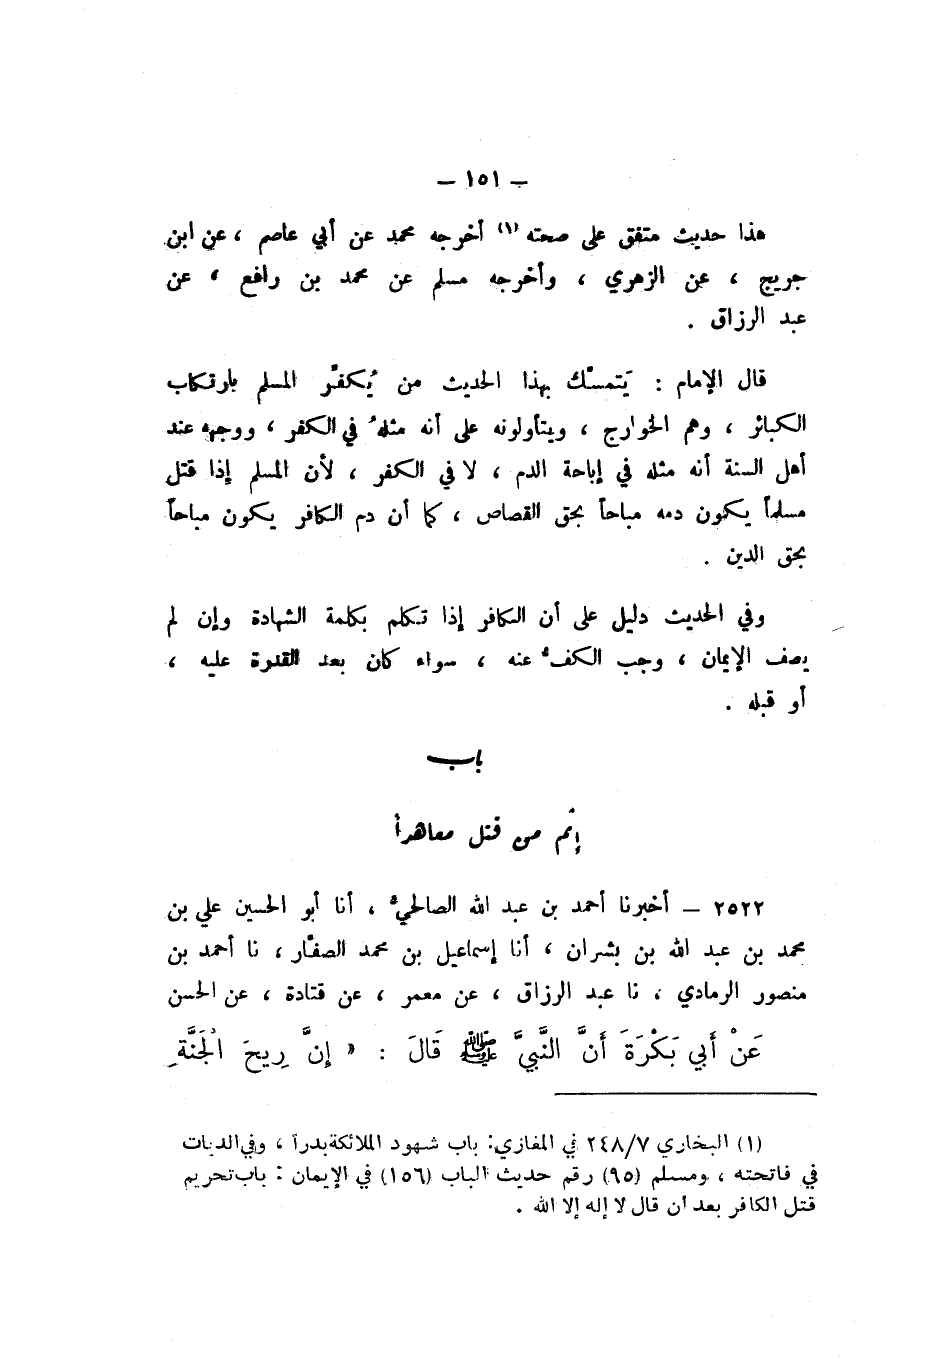 – ١٥١ –
هذا حديث متفق على صحته (١) أخرجه محمد عن أبي عاصم ، عن ابن
جريج ، عن الزهري ، وأخرجه مسلم عن محمد بن رافع ، عن
عبد الرزاق .
قال الإمام : يَتمسَّك بهذا الحديث من يُكفِّر المسلم بارتكاب
الكبائر ، وهم الخوارج ، ويتأولونه على أنه مثلهُ في الكفر ، ووجهه عند
أهل السنة أنه مثله في إباحة الدم ، لا في الكفر ، لأن المسلم إذا قتل
مسلماً يكون دمه مباحاً بحق القصاص ، كما أن دم الكافر يكون مباحاً
بحق الدين .
وفي الحديث دليل على أن الكافر إذا تكلم بكلمة الشهادة وإن لم
يصف الإيمان ، وجب الكفُّ عنه ، سواء كان بعد القدرة عليه ،
أو قبله .
باب
إثم من قتل معاهداً
٢٥٢٢ – أخبرنا أحمد بن عبد الله الصالحيُّ ، أنا أبو الحسين علي بن
محمد بن عبد الله بن بشران ، أنا إسماعيل بن محمد الصفّار ، نا أحمد بن
منصور الرمادي ، نا عبد الرزاق ، عن معمر ، عن قتادة ، عن الحسن
عَنْ أَبي بَكْرَةَ أَنَّ النَّبيَّ ﷺ قَالَ : « إِنَّ رِيحَ الْجَنَّةِ
(١) البخاري ٢٤٨/٧ في المغازي: باب شهود الملائكة بدراً ، وفي الديات
في فاتحته ، ومسلم (٩٥) رقم حديث الباب (١٥٦) في الإيمان : باب تحريم
قتل الكافر بعد أن قال لا إله إلا الله .